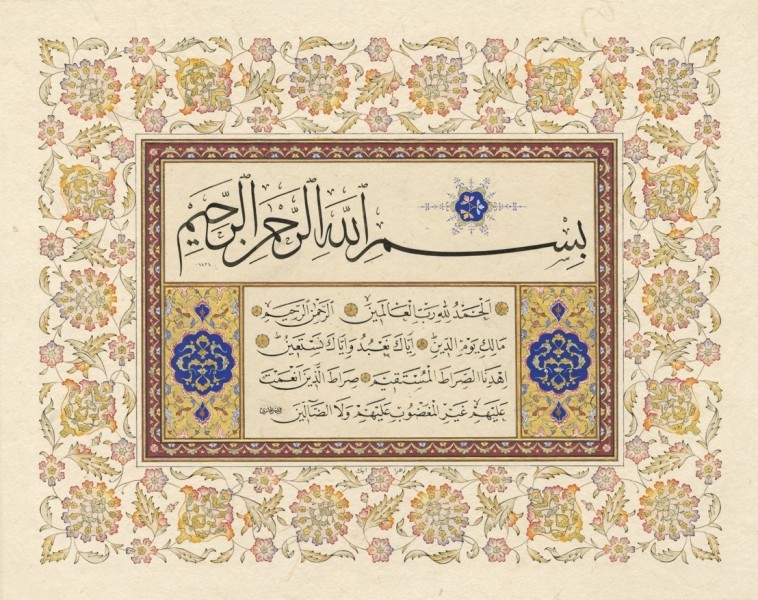 بِسْمِ اللهِ الرَّحْمٰنِ الرَّحِيمِ
اَلْحَمْدُ لِلّٰهِ رَبِّ الْعَالَمِينَ الرَّحْمٰنِ الرَّحِيمِ
مَالِكِ يَوْمِ الدِّينِ اِيَّاكَ نَعْبُدُ وَاِيَّاكَ نَسْتَعِينُ
اِهْدِنَا الصِّرَاطَ الْمُسْتَقِيمَ صِرَاطَ الَّذِينَ اَنْعَمْتَ
عَلَيْهِمْ غَيْرِ الْمَغْضُوبِ عَلَيْهِمْ وَلَا الضَّالِّينَ